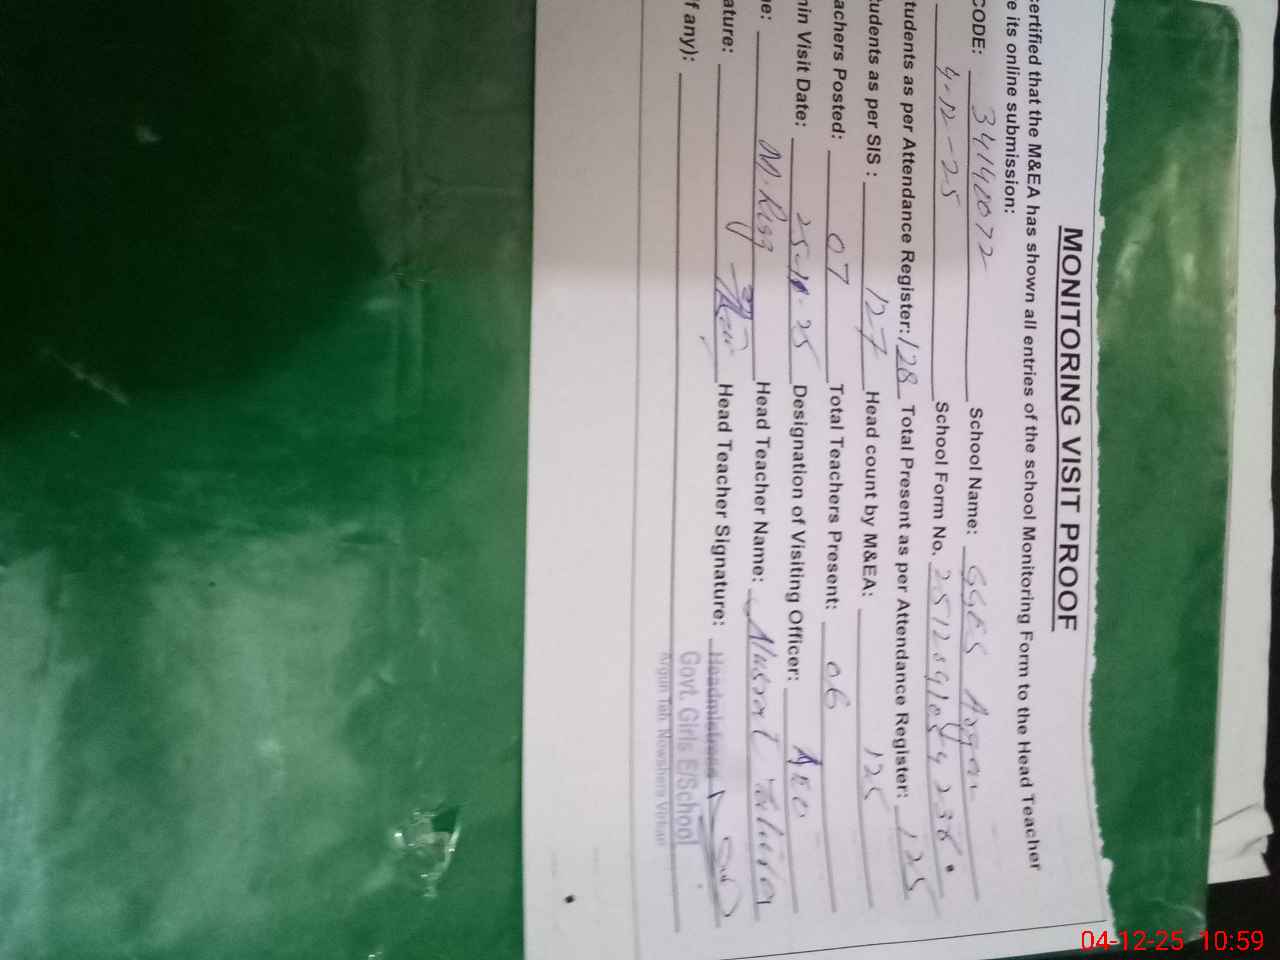 MONITORING VISIT PROOF
certified that the M&EA has shown all entries of the school Monitoring Form to the Head Teacher
e its online submission:
CODE: 34140072 School Name: GGES Argan
4-12-25 School Form No.
tudents as per Attendance Register: 128 Total Present as per Attendance Register: 125
tudents as per SIS : 127 Head count by M&EA: 125
achers Posted: 07 Total Teachers Present: 06
min Visit Date: 25-11-25 Designation of Visiting Officer: AEO
e: Head Teacher Name:
ature: Head Teacher Signature:
f any):
Headmistress
Govt. Girls E/School
Argun Teh. Nowshera Virkan
04-12-25 10:59